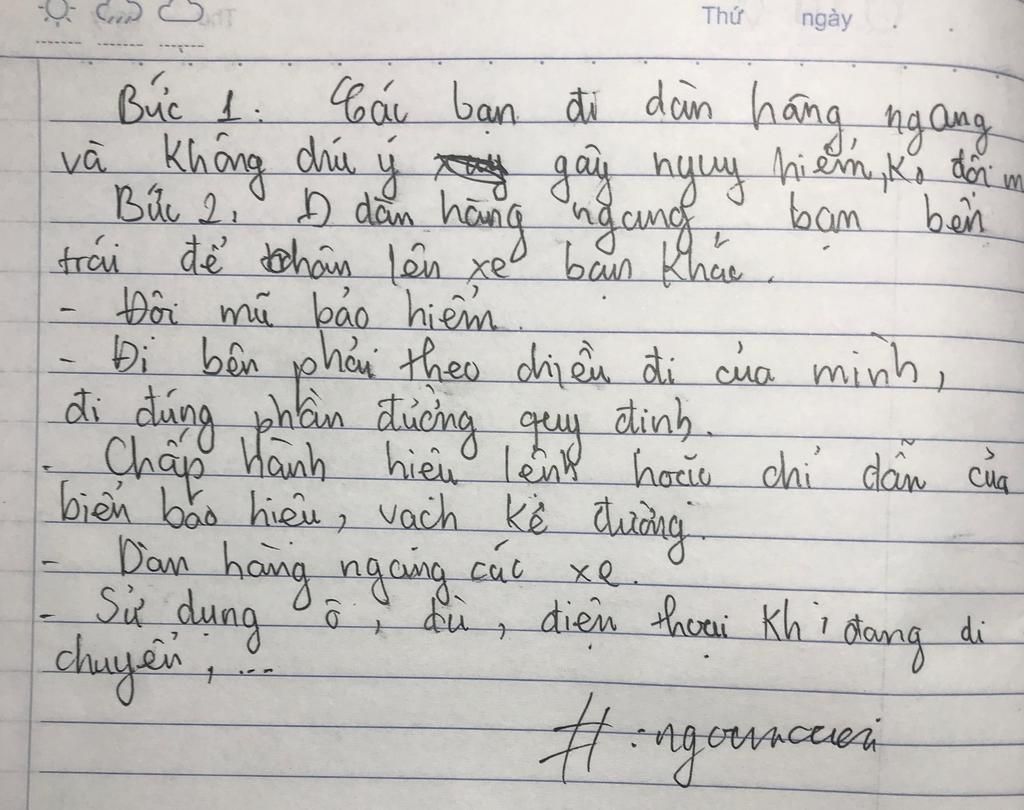 Thứ ngày . .
Bức 1: Các bạn đi dàn hàng ngang
và không chú ý gây nguy hiểm, K đội m
Bức 2, Đ dàn hàng ngang bạn bên
trái để chân lên xe bạn khác.
- Đội mũ bảo hiểm.
- Đi bên phải theo chiều đi của mình,
đi đúng phần đường quy định.
- Chấp Hành hiệu lệnh hoặc chỉ dẫn của
biển báo hiệu, vạch kẻ đường.
- Dàn hàng ngang các xe.
- Sử dụng ô, dù, điện thoại khi đang di
chuyển, ...